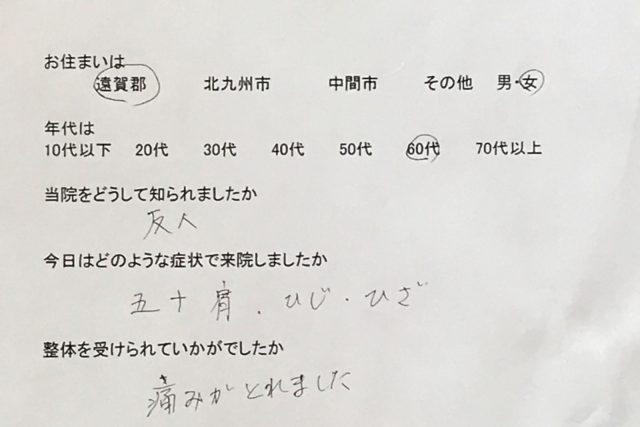 お住まいは
遠賀郡 北九州市 中間市 その他 男・女
年代は
10代以下 20代 30代 40代 50代 60代 70代以上
当院をどうして知られましたか
友人
今日はどのような症状で来院しましたか
五十肩.ひじ・ひざ
整体を受けられていかがでしたか
痛みがとれました